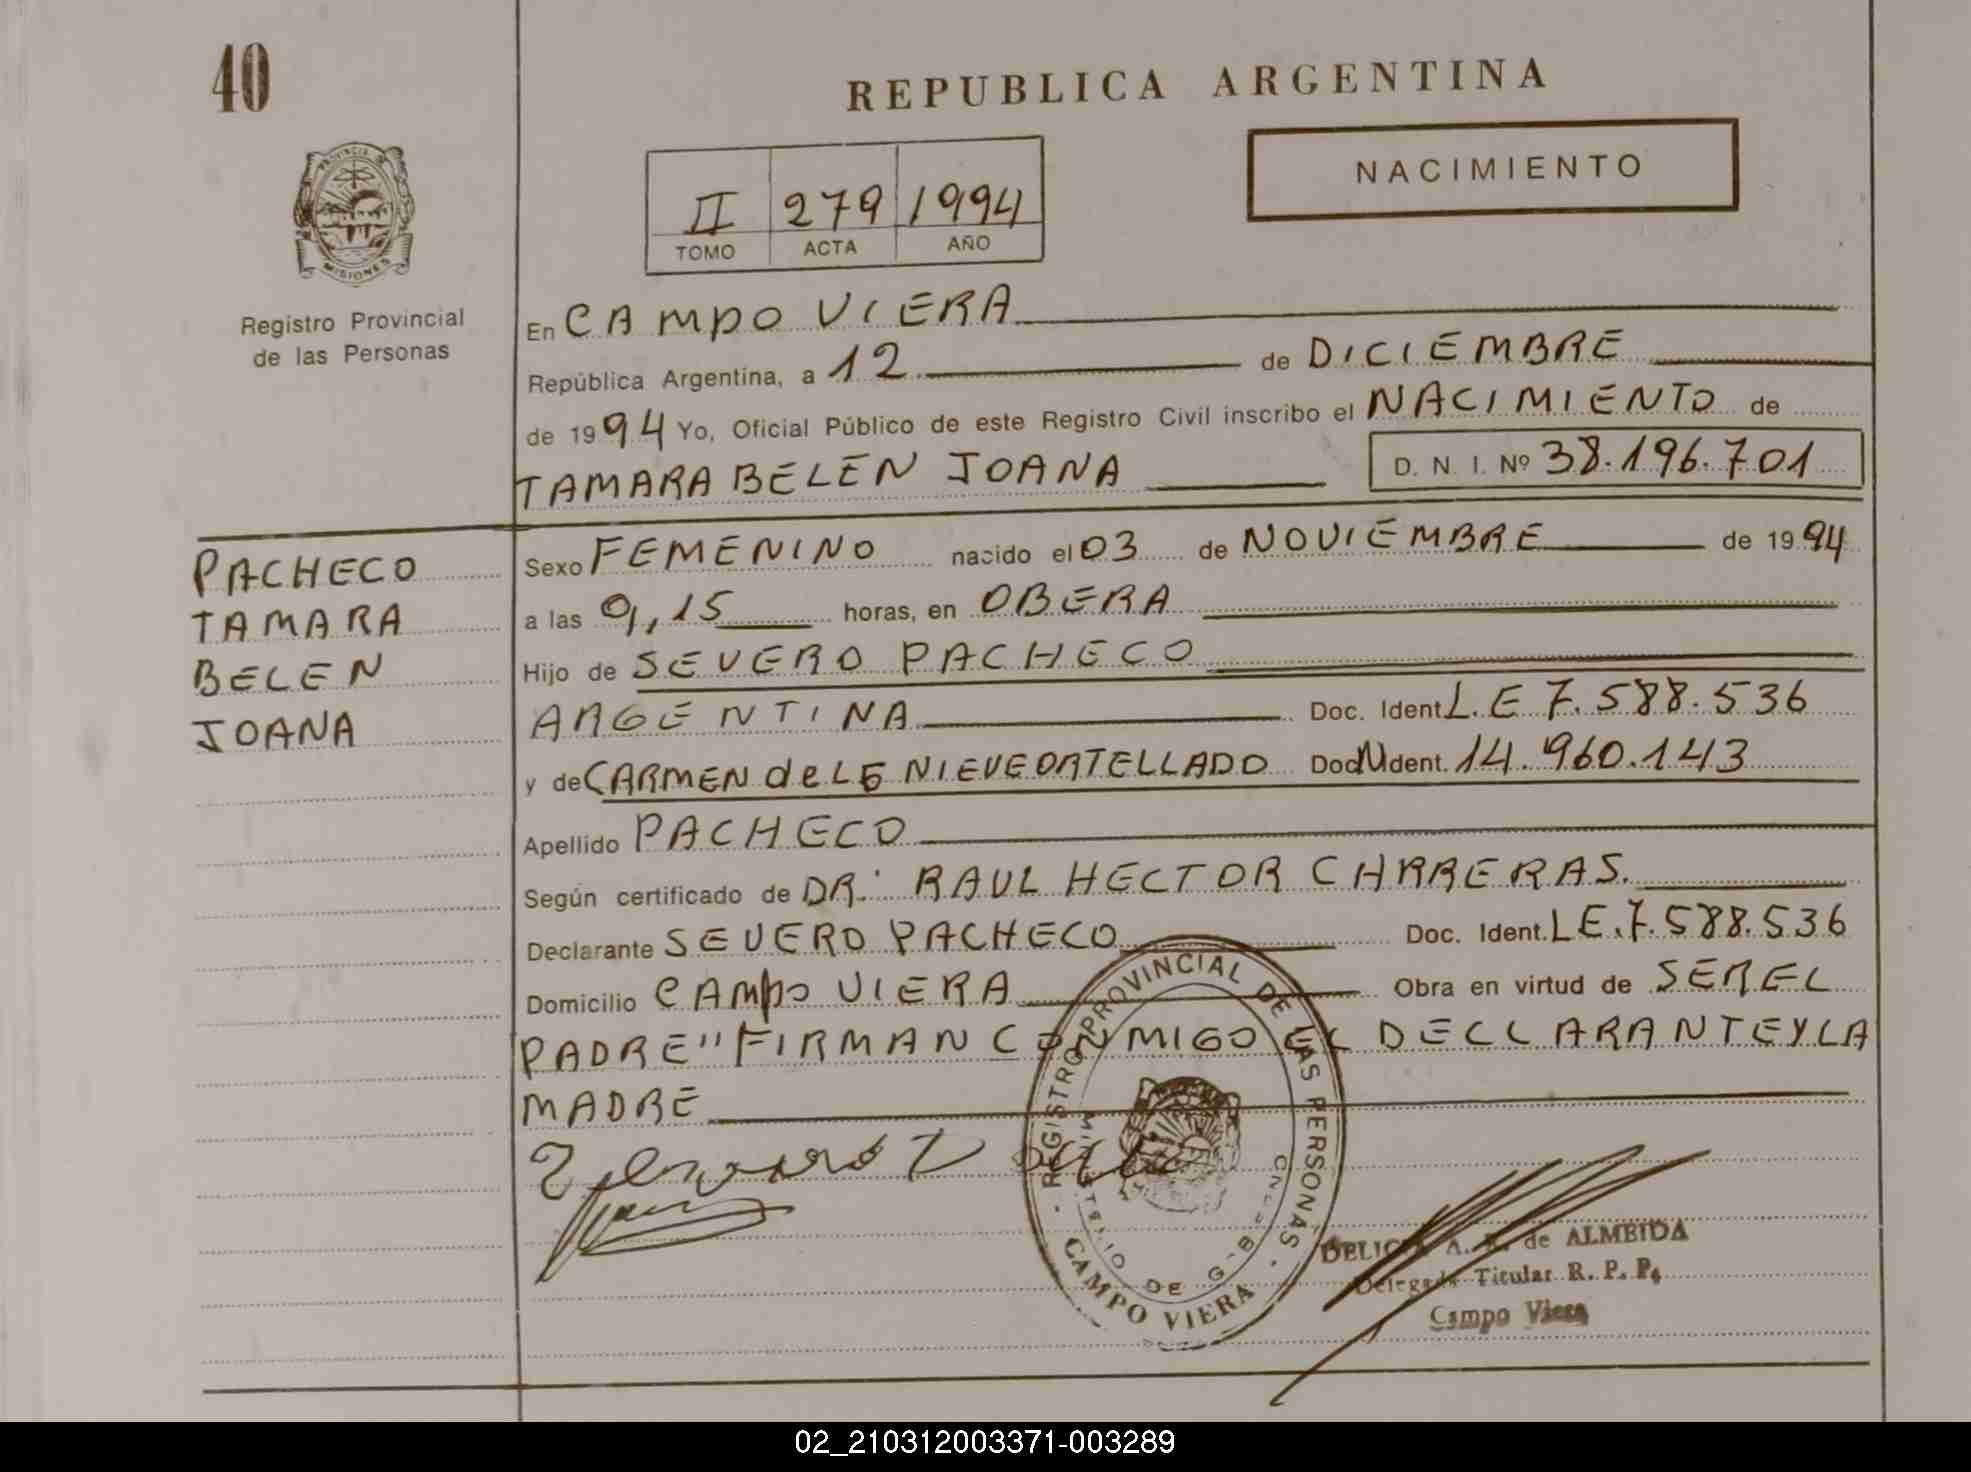 40
REPUBLICA ARGENTINA
PROVINCIA D
MISIONES
NACIMIENTO
II 279 1994
TOMO ACTA AÑO
Registro Provincial
de las Personas
En CAMPO VIERA
República Argentina, a 12 de DICIEMBRE
de 1994 Yo, Oficial Público de este Registro Civil inscribo el NACIMIENTO de
TAMARA BELEN JOANA D. N. I. Nº 38.196.701
PACHECO
TAMARA
BELEN
JOANA
Sexo FEMENINO nacido el 03 de NOVIEMBRE de 1994
a las 9,15 horas, en OBERA
Hijo de SEVERO PACHECO
ARGENTINA Doc. Ident. L.E 7.588.536
y de CARMEN de LE NIEVE ORTELLADO Doc. Ident. 14.960.143
Apellido PACHECO
Según certificado de DR. RAUL HECTOR CARRERAS.
Declarante SEVERO PACHECO Doc. Ident. LE.7.588.536
Domicilio CAMPO VIERA Obra en virtud de SER EL
PADRE" FIRMAN CONMIGO EL DECLARANTE Y LA
MADRE
REGISTRO PROVINCIAL DE LAS PERSONAS
MINISTERIO DE GOB
CAMPO VIERA
DELICIA A. de ALMEIDA
Delegada Titular R. P. P.
Campo Viera
02_210312003371-003289